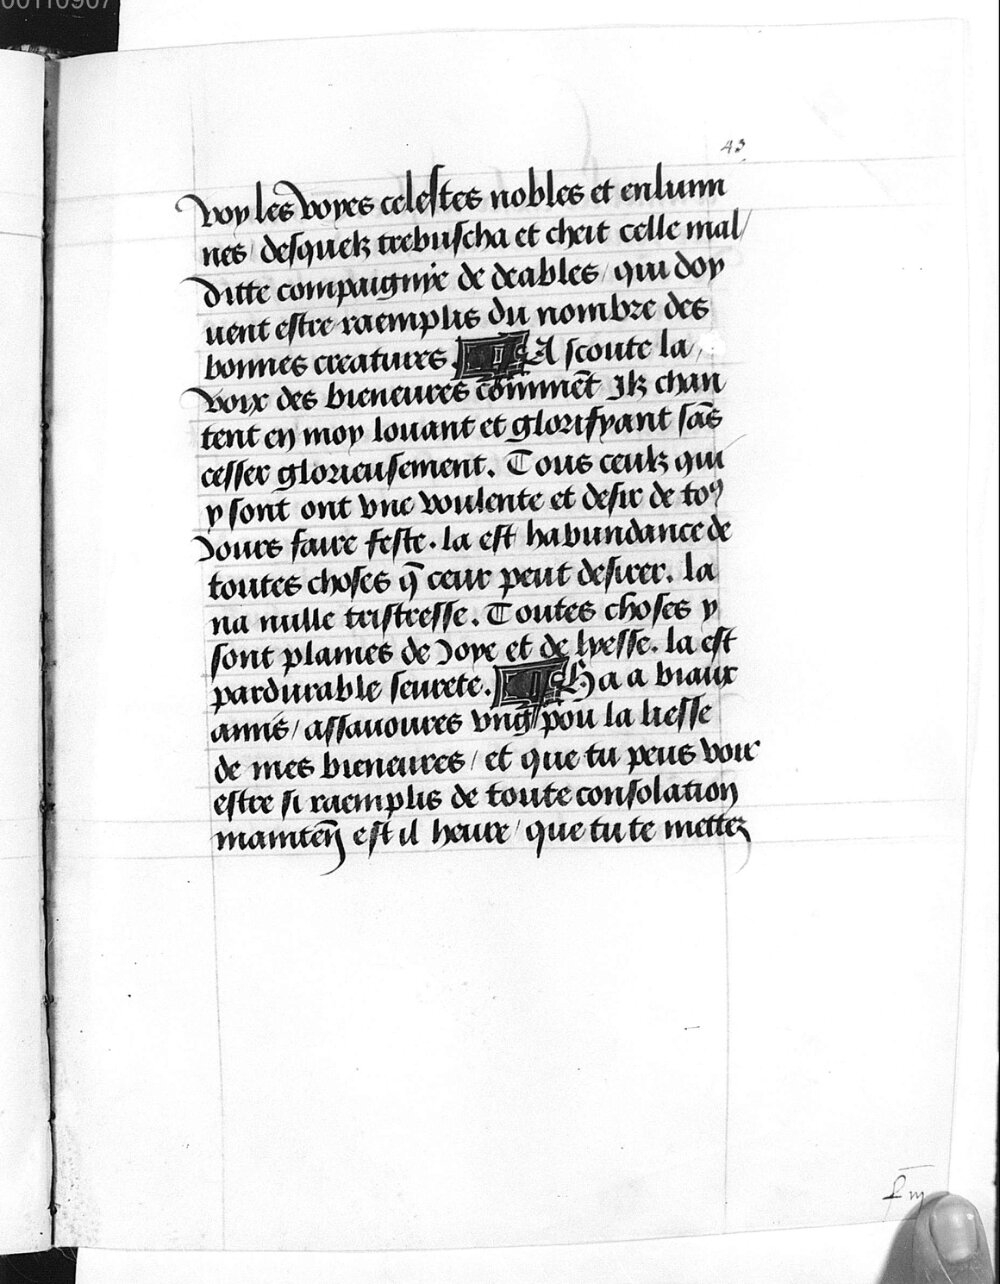 00110907
43
voy les voyes celestes nobles et enlumi
nes / desquelz trebuscha et cheit celle mal/
ditte compaignye de deables / qui doy
uent estre raemplis du nombre des
bonnes creatures . Ascoute la
voix des bieneures cōmmēt Ilz chan
tent en moy louant et glorifyant sās
cesser glorieusement . Tous ceulz qui
y sont ont vne voulente et desir de to9
Jours faire feste . la est habundance de
toutes choses q̄ ceur peut desirer . la
na nulle tristresse . Toutes choses y
sont plaines de Joye et de lyesse . la est
pardurable seurete . Ha a biaux
amis / assauoures vng pou la liesse
de mes bieneures / et que tu peus voir
estre si raemplis de toute consolation
mainten̄ est il heure / que tu te mettez